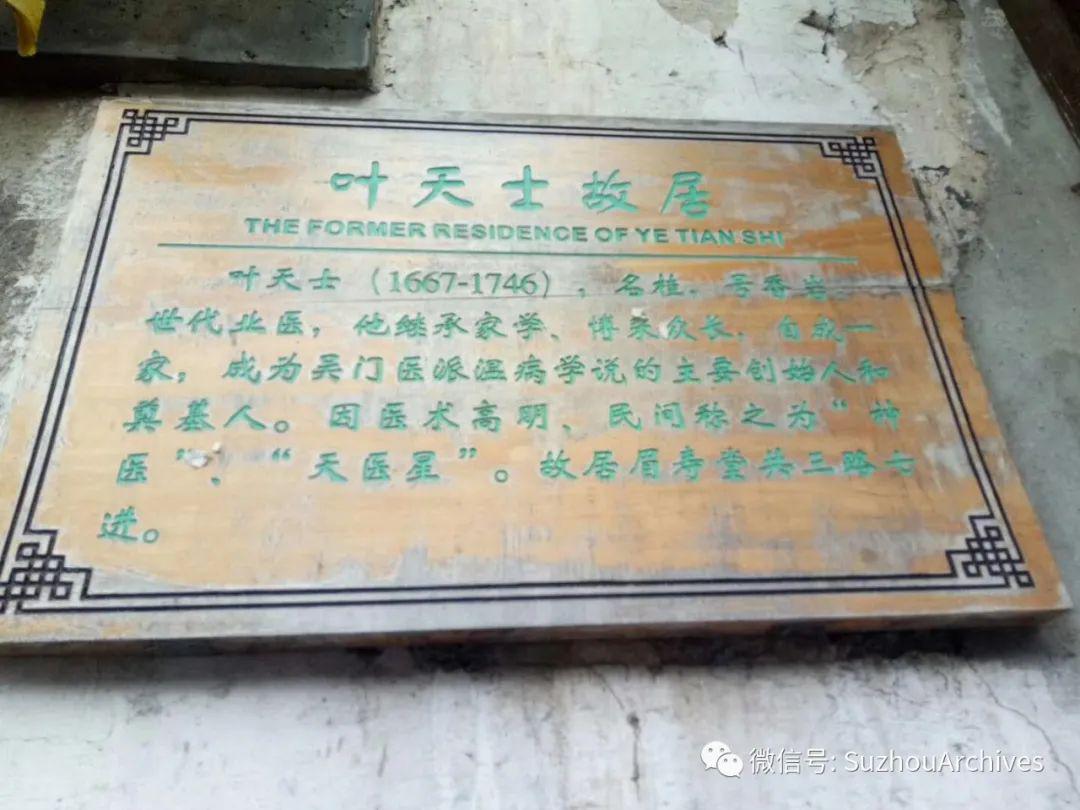 叶天士故居
THE FORMER RESIDENCE OF YE TIAN SHI
叶天士（1667-1746），名桂，号香岩
世代业医，他继承家学、博采众长，自成一
家，成为吴门医派温病学说的主要创始人和
奠基人。因医术高明、民间称之为“神
医”、“天医星”。故居眉寿堂共三路七
进。
微信号: SuzhouArchives